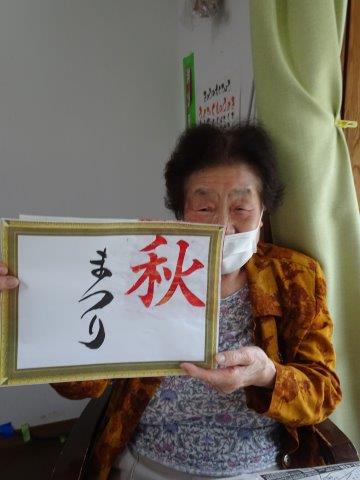 秋
まつり